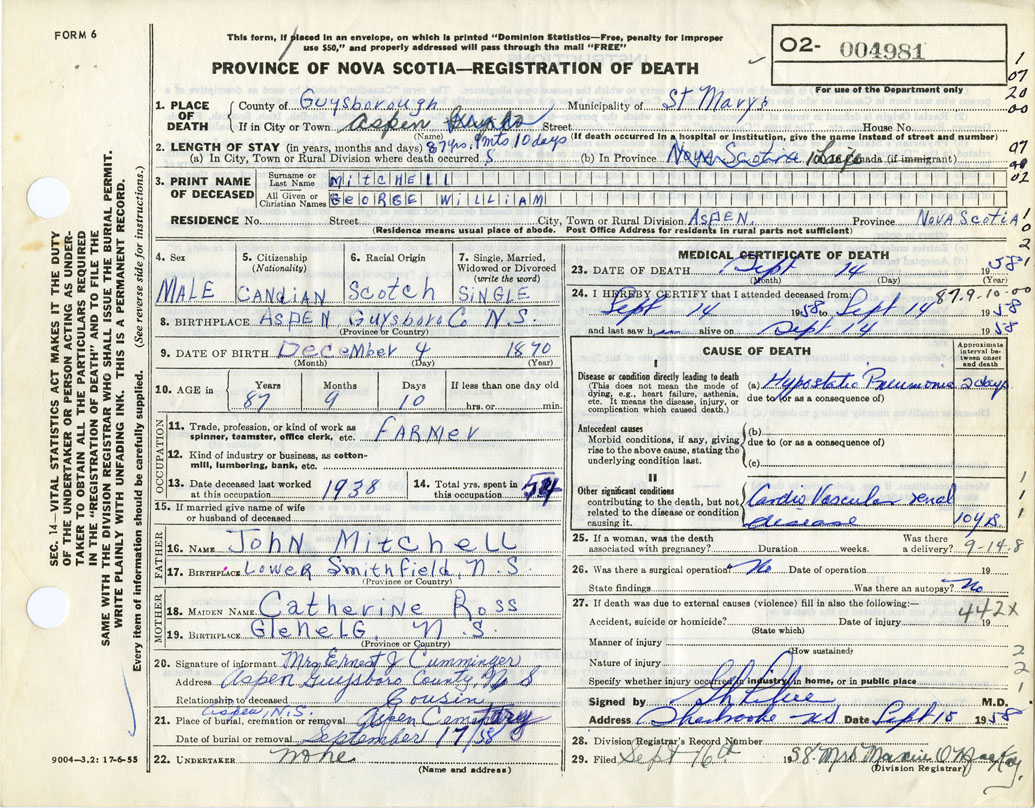 FORM 6
This form, if placed in an envelope, on which is printed "Dominion Statistics—Free, penalty for improper
use $50," and properly addressed will pass through the mail "FREE"
PROVINCE OF NOVA SCOTIA—REGISTRATION OF DEATH
O2- 004981
For use of the Department only
1
07
20
00
1. PLACE OF DEATH { County of Guysborough Municipality of St Marys
If in City or Town Aspen Street House No.
(Name) (If death occurred in a hospital or institution, give the name instead of street and number)
2. LENGTH OF STAY (in years, months and days) 87 yrs. 9 mts 10 days
(a) In City, Town or Rural Division where death occurred (b) In Province Nova Scotia Life Canada (if immigrant)
97
02
3. PRINT NAME OF DECEASED
Surname or Last Name MITCHELL
All Given or Christian Names GEORGE WILLIAM
RESIDENCE No. Street City, Town or Rural Division ASPEN. Province NOVA SCOTIA
(Residence means usual place of abode. Post Office Address for residents in rural parts not sufficient)
1
0
2
SEC. 14—VITAL STATISTICS ACT MAKES IT THE DUTY
OF THE UNDERTAKER OR PERSON ACTING AS UNDER-
TAKER TO OBTAIN ALL THE PARTICULARS REQUIRED
IN THE "REGISTRATION OF DEATH" AND TO FILE THE
SAME WITH THE DIVISION REGISTRAR WHO SHALL ISSUE BURIAL PERMIT.
WRITE PLAINLY WITH UNFADING INK. THIS IS A PERMANENT RECORD.
Every item of information should be carefully supplied. (See reverse side for instructions.)
4. Sex
MALE
5. Citizenship
(Nationality)
CANDIAN
6. Racial Origin
Scotch
7. Single, Married,
Widowed or Divorced
(write the word)
SiNGLE
8. BIRTHPLACE ASPEN Guysboro Co N.S.
(Province or Country)
9. DATE OF BIRTH December 4 1870
(Month) (Day) (Year)
10. AGE in Years Months Days If less than one day old
87 9 10 hrs. or min.
OCCUPATION
11. Trade, profession, or kind of work as
spinner, teamster, office clerk, etc. FARMER
12. Kind of industry or business, as cotton-
mill, lumbering, bank, etc.
13. Date deceased last worked
at this occupation 1938
14. Total yrs. spent in
this occupation 54
15. If married give name of wife
or husband of deceased
FATHER
16. NAME John Mitchell
17. BIRTHPLACE Lower Smithfield, N.S.
(Province or Country)
MOTHER
18. MAIDEN NAME Catherine Ross
19. BIRTHPLACE GleNeLG, N.S.
(Province or Country)
20. Signature of informant Mrs Ernest J Cumminger
Address Aspen Guysboro County, N S
Relationship to deceased Cousin
Aspen, N.S.
21. Place of burial, cremation or removal Aspen Cemetary
Date of burial or removal September 17/58
22. UNDERTAKER None
(Name and address)
9004—3.2: 17-6-55
MEDICAL CERTIFICATE OF DEATH
23. DATE OF DEATH Sept 14 1958
(Month) (Day) (Year)
1
24. I HEREBY CERTIFY that I attended deceased from: 87.9-10-00
Sept 14 1958 to Sept 14 1958
and last saw him alive on Sept 14 1958
CAUSE OF DEATH
Approximate
interval be-
tween onset
and death
I
Disease or condition directly leading to death
(This does not mean the mode of
dying, e.g., heart failure, asthenia,
etc. It means the disease, injury, or
complication which caused death.)
(a) Hypostatic Pneumonia 2 days
due to (or as a consequence of)
Antecedent causes
Morbid conditions, if any, giving
rise to the above cause, stating the
underlying condition last.
(b)
due to (or as a consequence of)
(c)
II
Other significant conditions
contributing to the death, but not
related to the disease or condition
causing it.
Cardio Vascular renal
disease 10 yrs.
1
1
1
25. If a woman, was the death
associated with pregnancy? Duration weeks. Was there
a delivery? 9-14-8
26. Was there a surgical operation? No Date of operation 19
State findings Was there an autopsy? No
27. If death was due to external causes (violence) fill in also the following:—
442X
Accident, suicide or homicide? Date of injury 19
(State which)
Manner of injury
(How sustained)
Nature of injury
Specify whether injury occurred in industry, in home, or in public place
2
2
1
Signed by M.D.
Address Sherbrooke NS Date Sept 15 1958
28. Division Registrar's Record Number
29. Filed Sept 16th 1958 Mrs O MacKay
(Division Registrar)
1